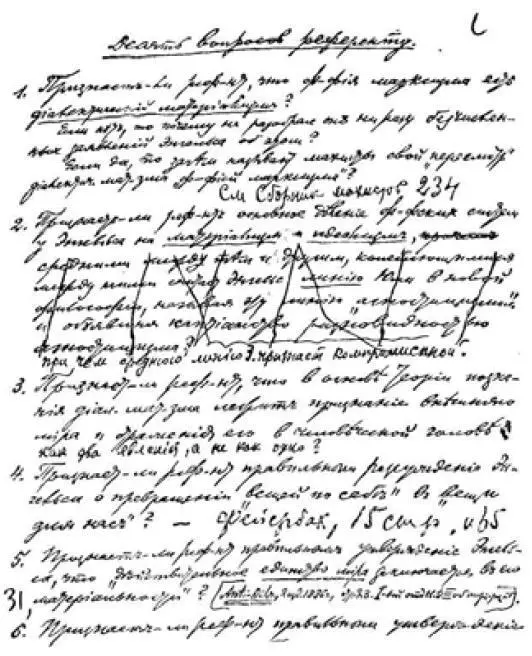 Десять вопросов референту.
1. Признает-ли реф-нт, что ф-фія марксизма есть
діалектическій матеріализм?
Если нет, то почему не разобрал он ни разу безчислен-
ных заявленій Энгельса об этом?
Если да, то зачем называют махисты свой „пересмотр"
діалект. мат-зма „ф-фіей марксизма"?
См Сборник махистов 234
2. Признает-ли реф-нт основное деленіе ф-фских систем
у Энгельса на матеріализм и идеализм, причем
средними между тем и другим, колеблющимися
между ними считает Энгельс линію Юма в новой
философіи, называя эту линію „агностицизмом"
и объявляя кантіанство разновидностью
агностицизма?
при чем среднюю линію Э. признает компромиссной.
3. Признает-ли реф-нт, что в основе теоріи позна-
нія діал. мат-зма лежит признаніе внешняго
міра и отраженія его в человеческой голове
как два явленія, а не как одно?
4. Признает-ли реф-нт правильным разсужденіе Эн-
гельса о превращеніи „вещей по себе" в „вещи
для нас"? — Фейербах, 15 стр. и 65
5. Признает-ли реф-нт правильным утвержденіе Энгель-
са, что „действительное единство міра заключается в его
31, матеріальности"? (Anti-Dühr., 1886,
6. Признает-ли реф-нт правильным утвержденіе